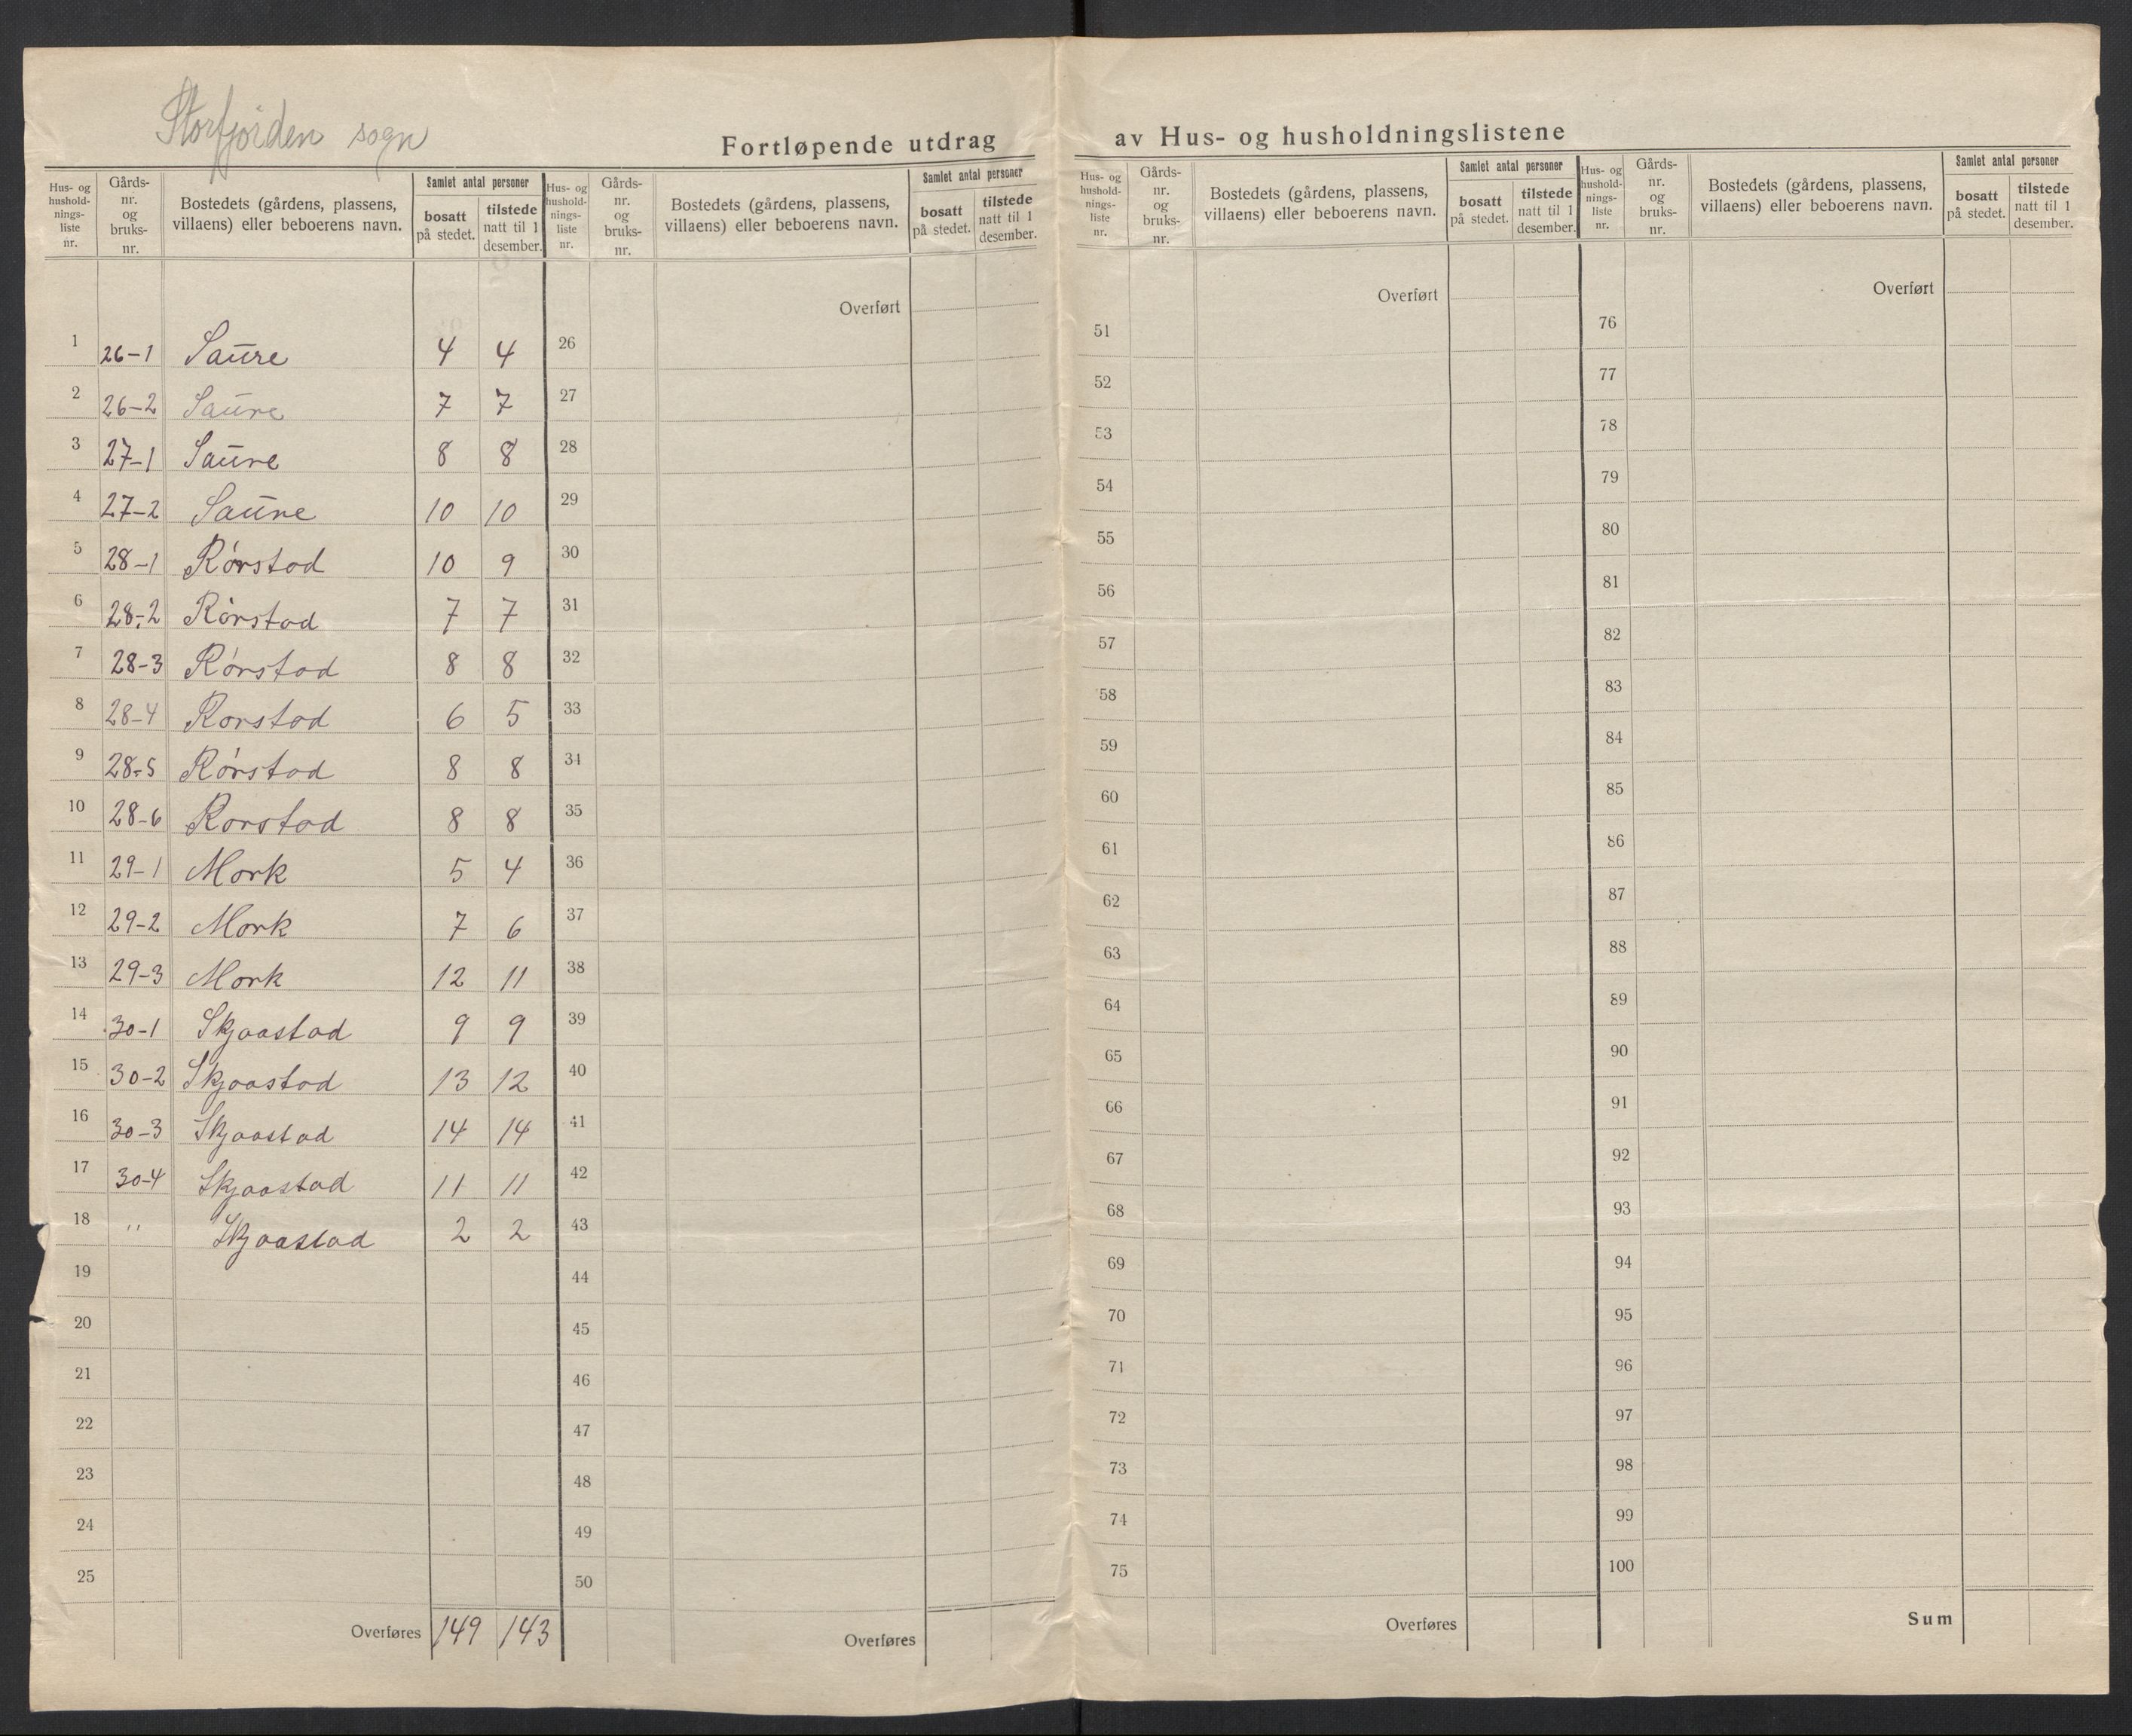 Storfjorden sogn
Fortløpende utdrag av Hus- og husholdningslistene
Hus- og hushold- nings- liste nr. | Gårds- nr. og bruks- nr. | Bostedets (gårdens, plassens, villaens) eller beboerens navn. | Samlet antal personer | bosatt på stedet. | tilstede natt til 1 desember.
Hus- og hushold- nings- liste nr. | Gårds- nr. og bruks- nr. | Bostedets (gårdens, plassens, villaens) eller beboerens navn. | Samlet antal personer | bosatt på stedet. | tilstede natt til 1 desember.
Hus- og hushold- nings- liste nr. | Gårds- nr. og bruks- nr. | Bostedets (gårdens, plassens, villaens) eller beboerens navn. | Samlet antal personer | bosatt på stedet. | tilstede natt til 1 desember.
Hus- og hushold- nings- liste nr. | Gårds- nr. og bruks- nr. | Bostedets (gårdens, plassens, villaens) eller beboerens navn. | Samlet antal personer | bosatt på stedet. | tilstede natt til 1 desember.
Overført Overført Overført
1 26-1 Saūre 4 4 26 51 76
2 26-2 Saūre 7 7 27 52 77
3 27-1 Saūre 8 8 28 53 78
4 27-2 Saūre 10 10 29 54 79
5 28-1 Rórstad 10 9 30 55 80
6 28-2 Rórstad 7 7 31 56 81
7 28-3 Rórstad 8 8 32 57 82
8 28-4 Rorstad 6 5 33 58 83
9 28-5 Rórstad 8 8 34 59 84
10 28-6 Rorstad 8 8 35 60 85
11 29-1 Mork 5 4 36 61 86
12 29-2 Mork 7 6 37 62 87
13 29-3 Mork 12 11 38 63 88
14 30-1 Skjaastad 9 9 39 64 89
15 30-2 Skjaastad 13 12 40 65 90
16 30-3 Skjaastad 14 14 41 66 91
17 30-4 Skjaastad 11 11 42 67 92
18 " Skjaastad 2 2 43 68 93
19 44 69 94
20 45 70 95
21 46 71 96
22 47 72 97
23 48 73 98
24 49 74 99
25 50 75 100
Overføres 149 143 Overføres Overføres Sum